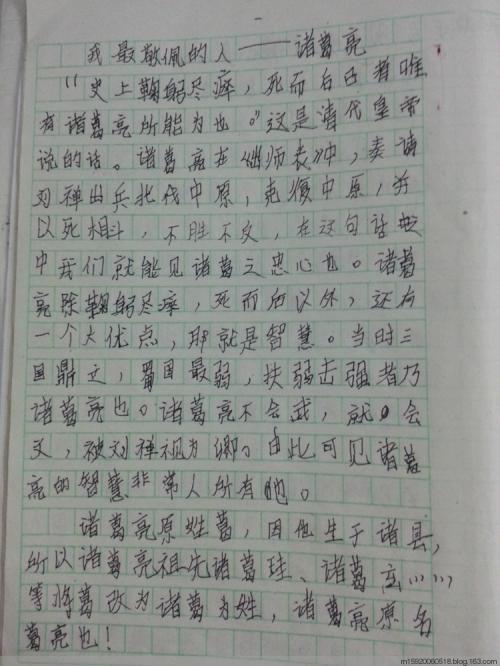 我最敬佩的人——诸葛亮
“史上鞠躬尽瘁，死而后已者唯
有诸葛亮所能为也。”这是清代皇帝
说的话。诸葛亮在《出师表》中，奏请
刘禅出兵北伐中原，克復中原，并
以死相斗，不胜不
，在这句话
中我们就能见诸葛之忠心也。诸葛
亮除鞠躬尽瘁，死而后以外，还有
一个大优点，那就是智慧。当时三
国鼎立，蜀国最弱，扶弱击强者乃
诸葛亮也。诸葛亮不会武，就会
文，被刘禅视为卿。由此可见诸葛
亮的智慧非常人所有也。
诸葛亮原姓葛，因他生于诸县，
所以诸葛亮祖先诸葛珪、诸葛玄……
等将葛改为诸葛为姓，诸葛亮原名
葛亮也！
m15920060518.blog.163.com